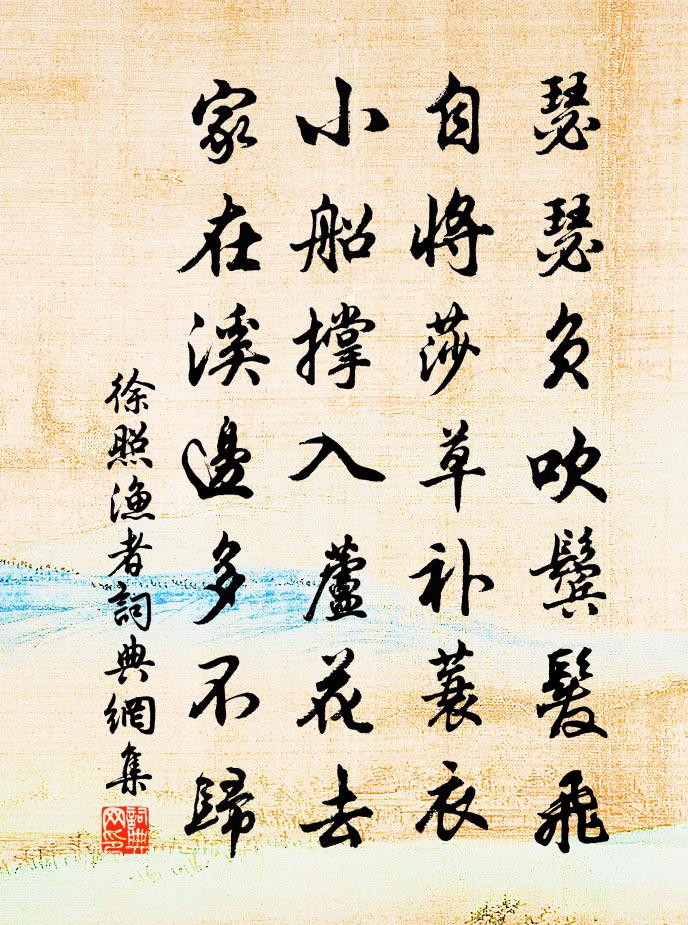 瑟瑟吹鬢髮飛
自將莎草补蓑衣
小船撑入蘆花去
家在溪邊多不歸
徐照漁者詞典網集
詞典